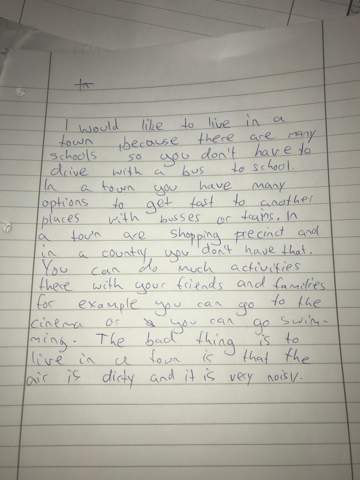 I would like to live in a
town, because there are many
schools so you don't have to
drive with a bus to school.
In a town you have many
options to get fast to another
places with busses or tains. In
a town are shopping precinct and
in a country you don't have that.
You can do much activities
there with your friends and families
for example you can go to the
cinema or you can go swim-
ming. The bad thing is to
live in a town is that the
air is dirty and it is very noisy.